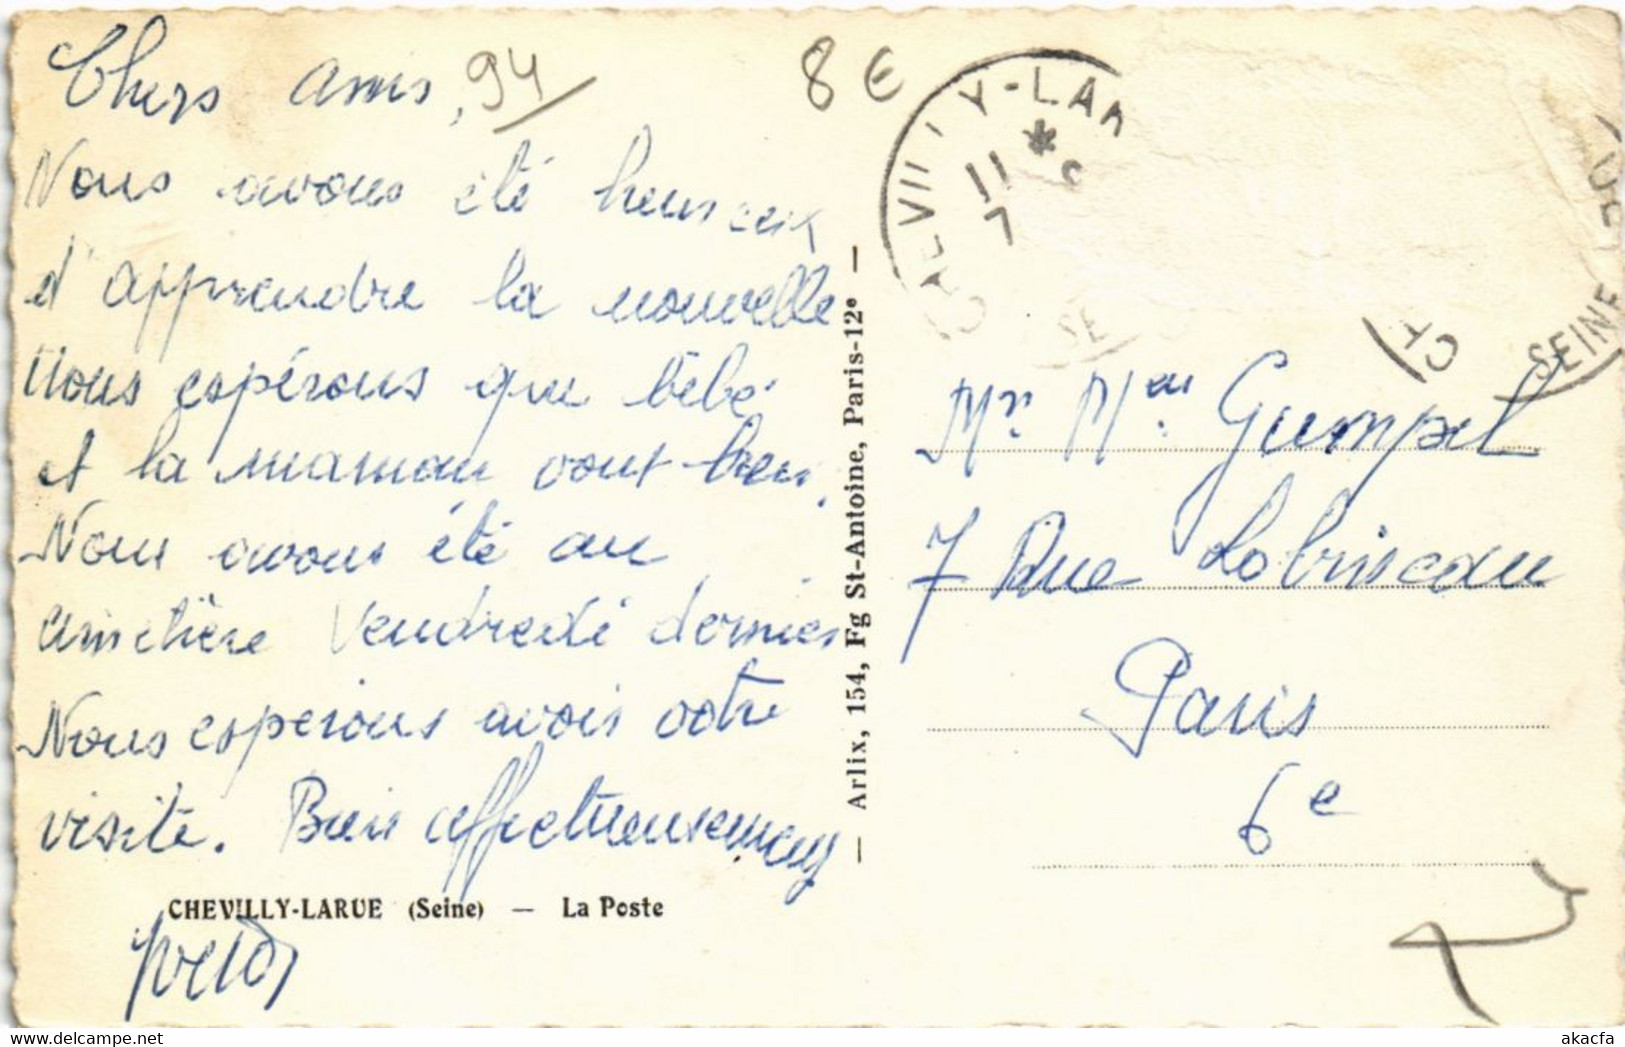 Chers amis,
94
8 €
Nous avons été heureux
d'apprendre la nouvelle
nous espérons que bébé
et la maman vont bien.
Nous avons été au
cimetière Vendredi dernier
Nous esperons avoir votre
visite. Bien affectueusement
CHEVILLY-LARUE (Seine) — La Poste
— Arlix, 154, Fg St-Antoine, Paris-12e —
CHEVILLY-LAR
11
7
SE
SEINE
Mr Men Gumpel
7 Rue Lobineau
Paris
6e
akacfa